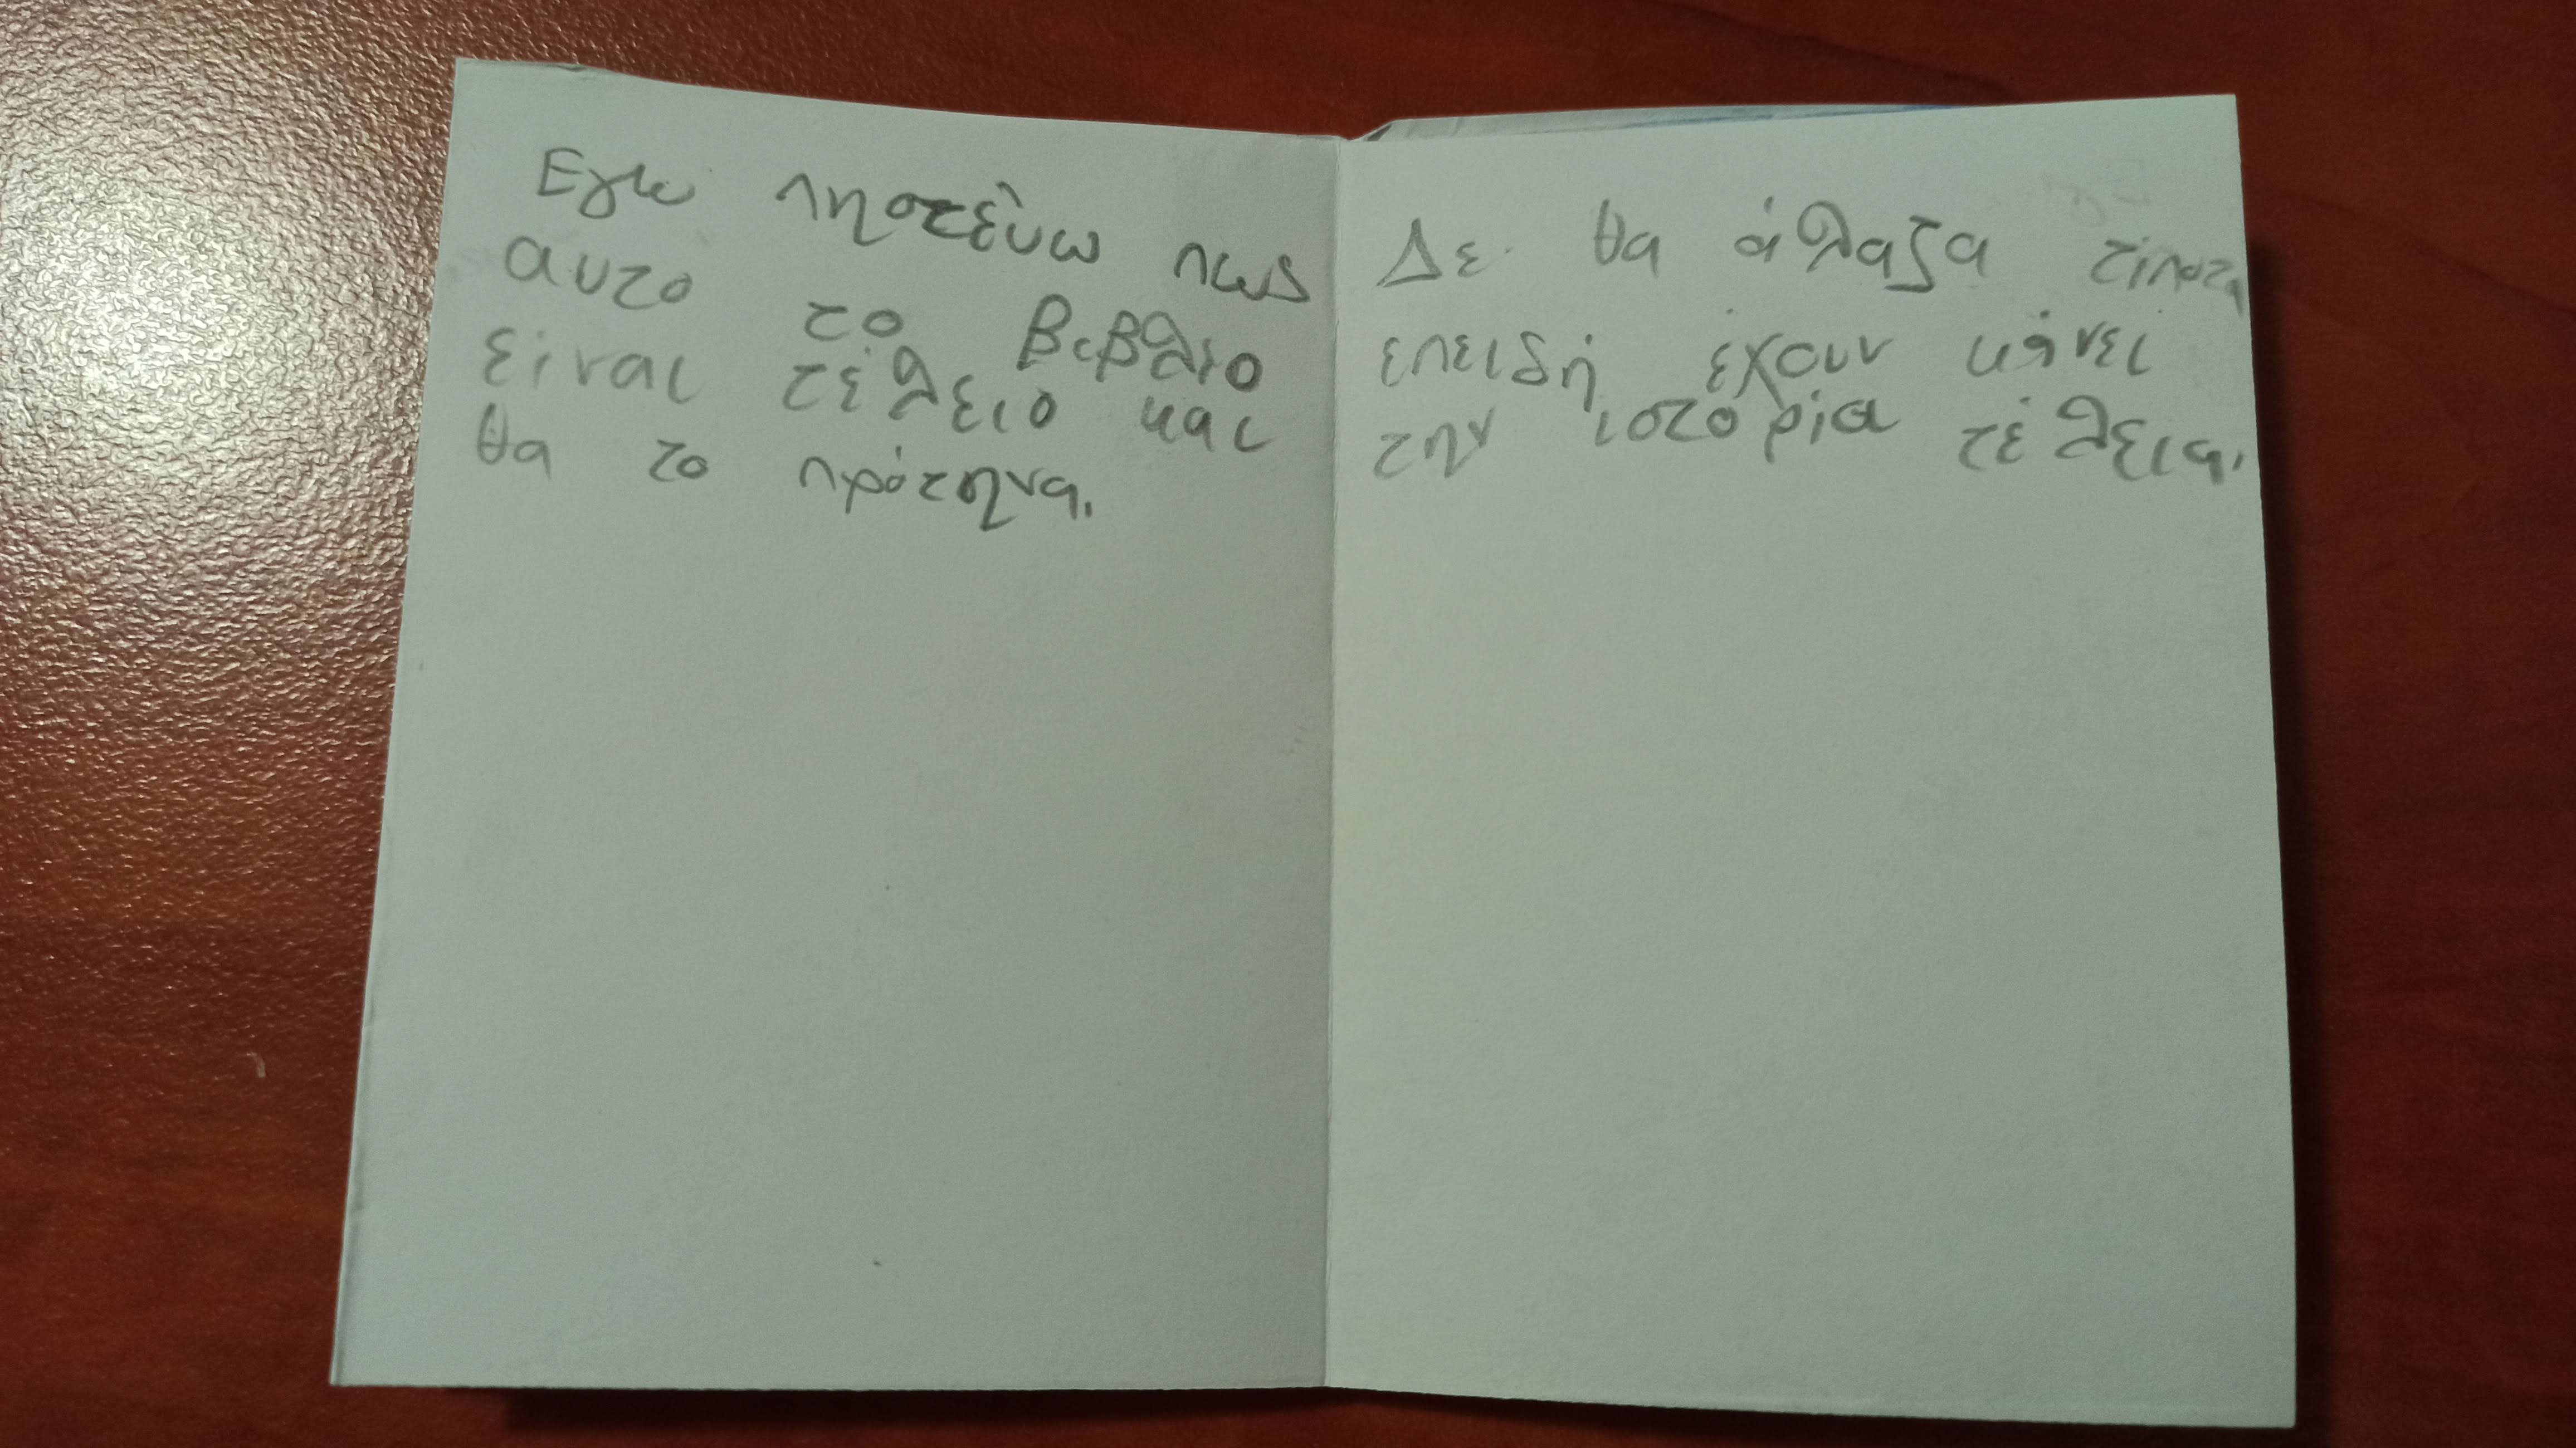 Εγω πηστεύω πως
αυτο το βιβλιο
είναι τέλειο και
θα το πρότηνα.
Δε θα άλαζα τίποτα
επειδή έχουν κάνει
την ιστορία τέλεια.